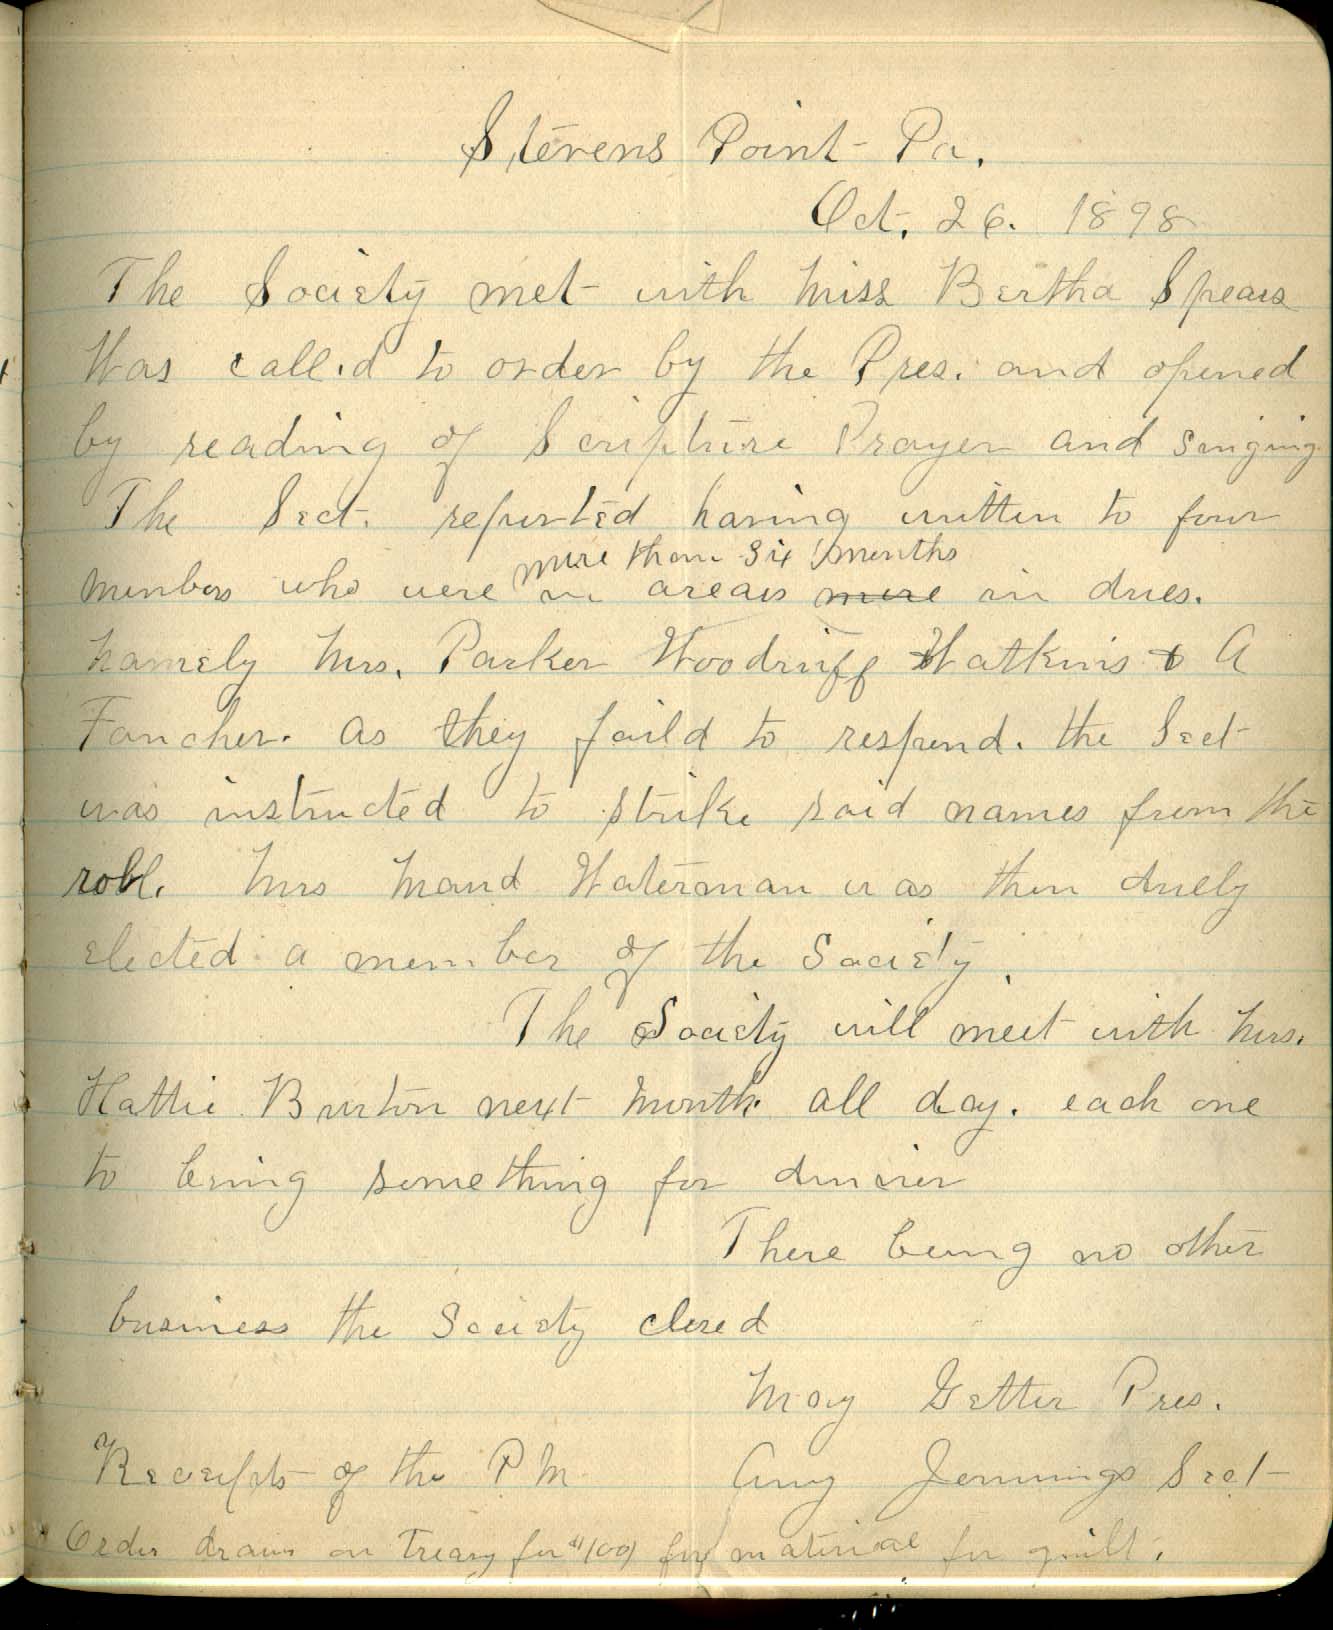 Stevens Point Pa.
Oct. 26. 1898
The Society met with Miss Bertha Spears
Was called to order by the Pres. and opened
by reading of Scripture Prayer and singing
The Sect. reported having written to four
more than six months
members who were in arears more in dues.
namely Mrs. Parker Woodruff Watkins & A
Fancher. as they faild to respond. the Sect
was instructed to strike said names from the
roll. Mrs Maud Waterman was then duely
elected a member of the Society.
The Society will meet with Mrs.
Hattie Burton next month all day. each one
to bring something for dinner
There being no other
business the Society closed
May Getter Pres.
Receipts of the P M Amy Jennings Sect
Order drawn on Treasy for $1.00 for material for quilt.